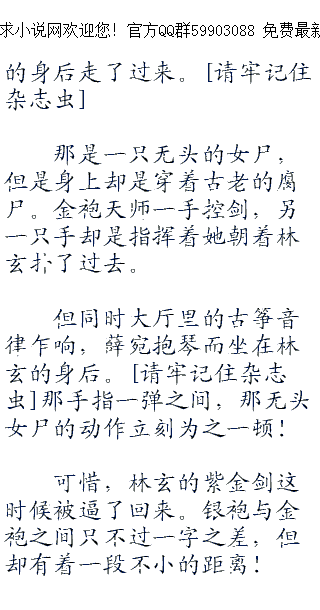 求小说网欢迎您！官方QQ群59903088 免费最新
的身后走了过来。[请牢记住
杂志虫]
那是一只无头的女尸，
但是身上却是穿着古老的腐
尸。金袍天师一手控剑，另
一只手却是指挥着她朝着林
玄扑了过去。
但同时大厅里的古筝音
律乍响，薛宛抱琴而坐在林
玄的身后。[请牢记住杂志
虫]那手指一弹之间，那无头
女尸的动作立刻为之一顿！
可惜，林玄的紫金剑这
时候被逼了回来。银袍与金
袍之间只不过一字之差，但
却有着一段不小的距离！